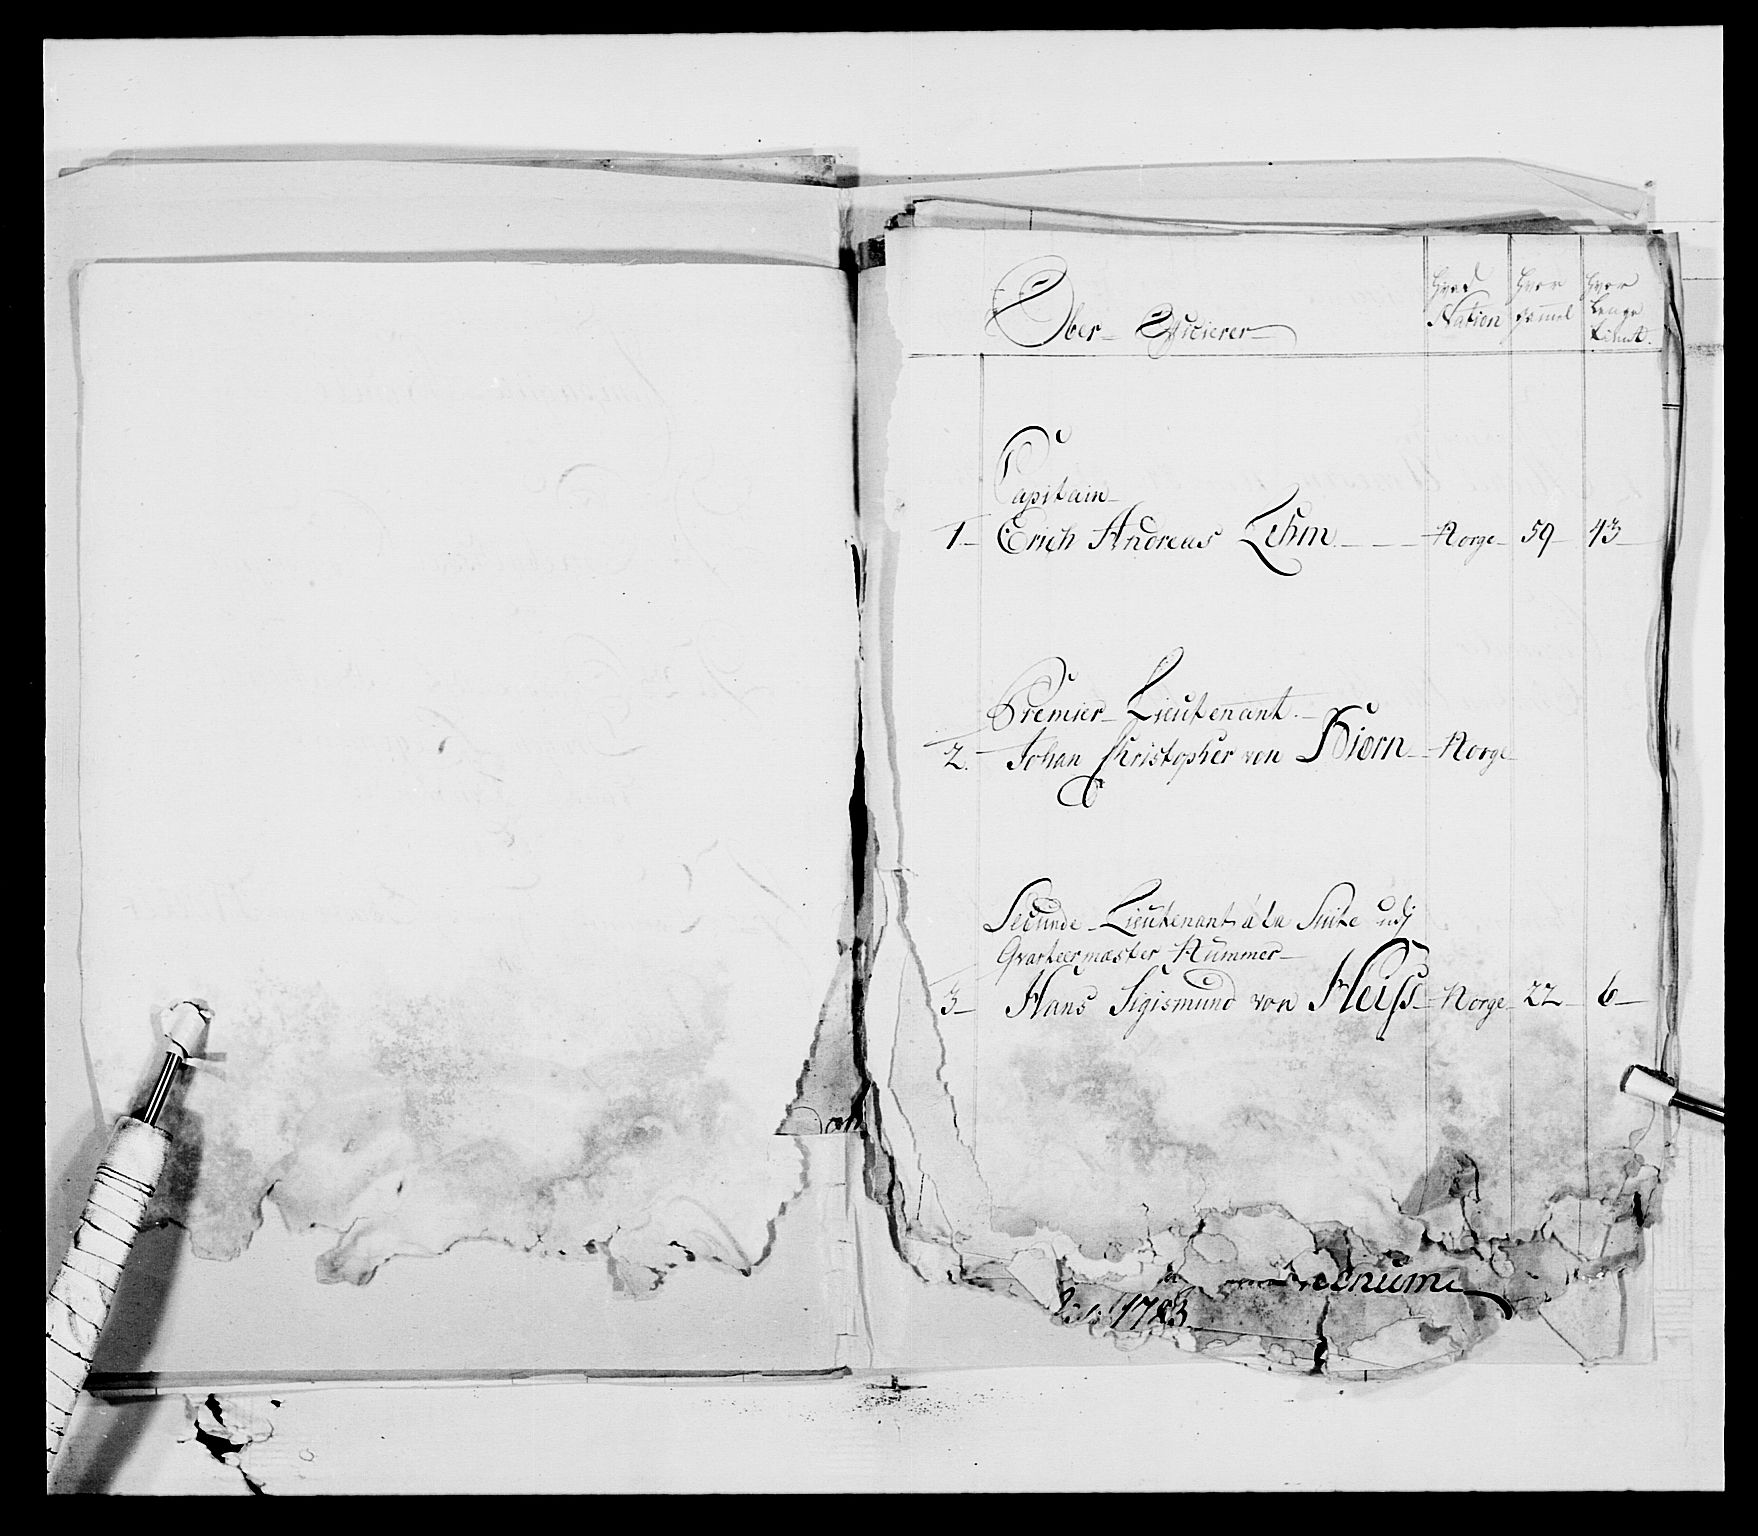 Ober- Officierer
Hvad Nation
Hvor gammel
Hvor Lenge tient.
Capitain
1 Erich Andreas Lehm Norge 59 43
Premier Lieutenant.
2. Johan Christopher von Biørn Norge
Secunde-Lieutenant á la Suite udj
Qvarteermæster Nummer
3 Hans Sigismund von Heiss Norge 22 6
1783